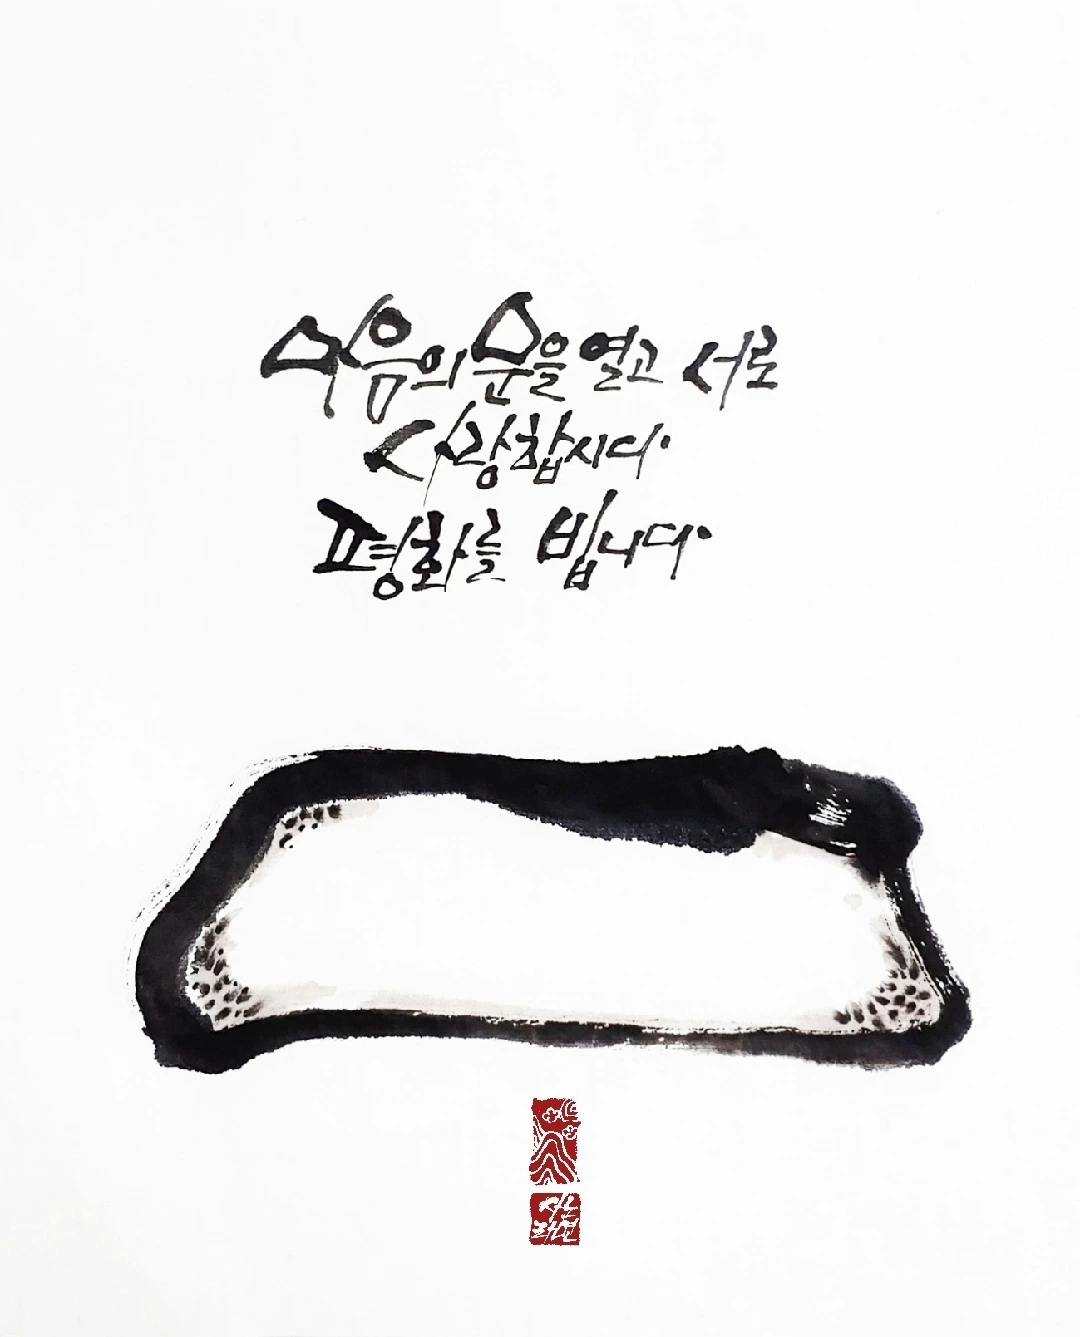 마음의 문을 열고 서로
사랑합시다.
평화를 빕니다.